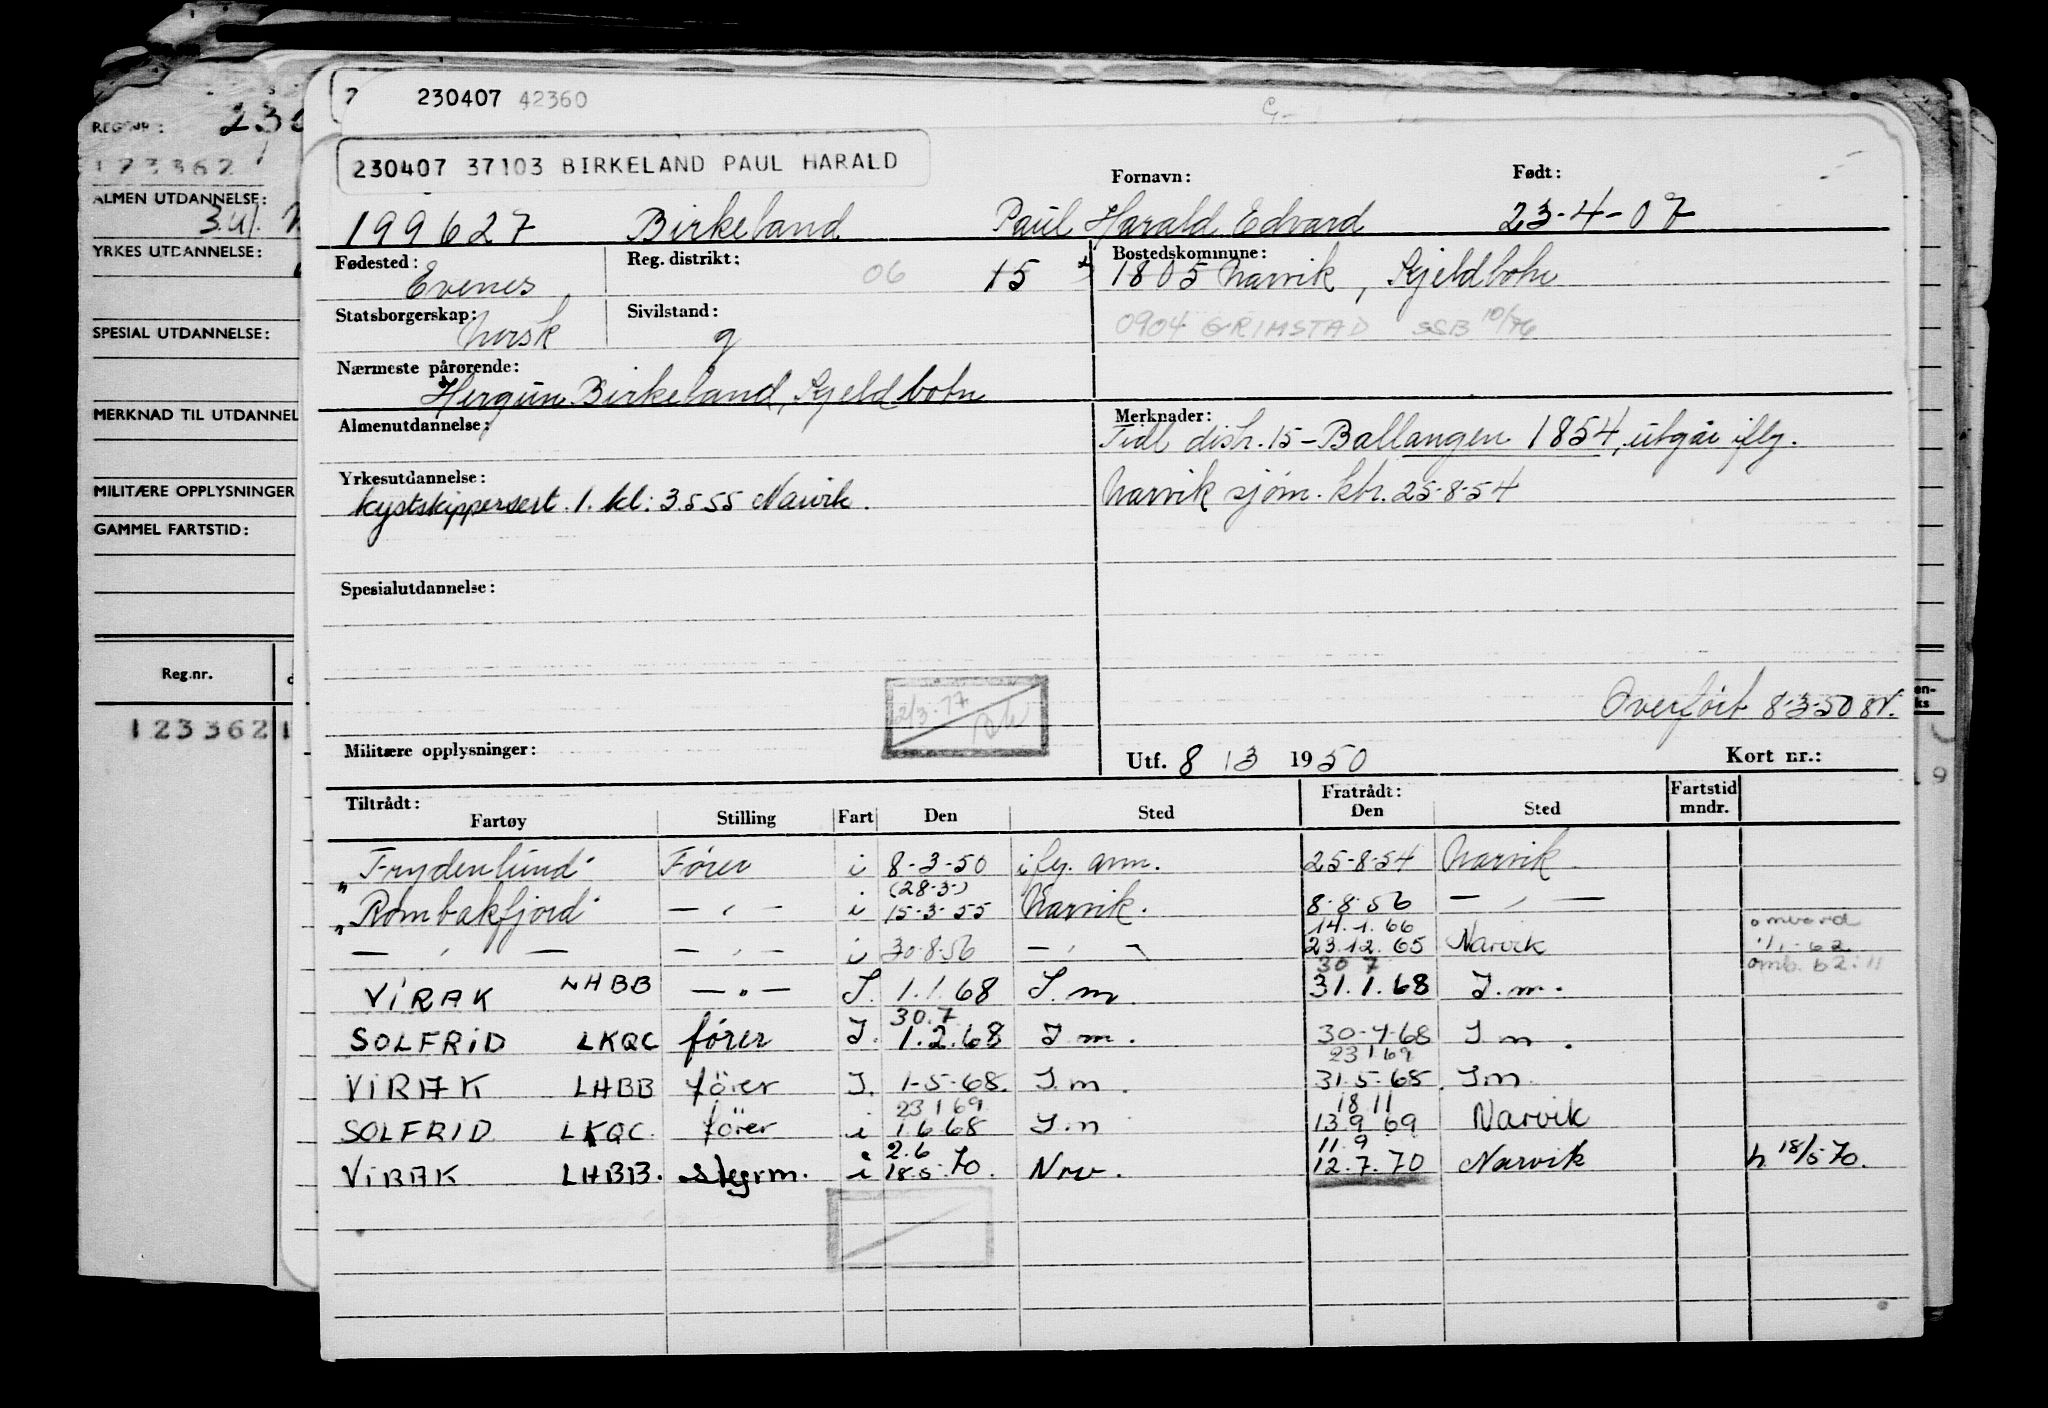 REG.NR.:
123362
ALMEN UTDANNELSE:
YRKES UTDANNELSE:
SPESIAL UTDANNELSE:
MERKNAD TIL UTDANNEL
MILITÆRE OPPLYSNINGER
GAMMEL FARTSTID:
Reg.nr.
123362
7 230407 42360
230407 37103 BIRKELAND PAUL HARALD
Fornavn: Født:
199627 Birkeland Paul Harald Edvard 23-4-07
Fødested: Reg. distrikt: Bostedskommune:
Evenes 06 15 1805 Narvik, Kjeldbotn
Statsborgerskap: Sivilstand:
Norsk g 0904 GRIMSTAD SSB 10/76
Nærmeste pårørende:
Hergun Birkeland, Kjeldbotn
Almenutdannelse: Merknader:
Tidl distr. 15 - Ballangen 1854, utgår iflg.
Yrkesutdannelse:
kystskippersert. 1. kl: 3555 Narvik. Narvik sjøm. ktr. 25-8-54
Spesialutdannelse:
Overført 8-3-50
Militære opplysninger: Utf. 8 / 3 1950 Kort nr.:
Tiltrådt: Fratrådt: Fartstid
Fartøy Stilling Fart Den Sted Den Sted mndr.
"Frydenlund" Fører i 8-3-50 iflg. ann. 25-8-54 Narvik
(28-3-)
"Rombakfjord" — " — i 15-3-55 Narvik. 8-8-56 — " —
14.1.66 ombord
— " — — " — i 30-8-56 — " — 23.12.65 Narvik 1/1-62
30 7 omb. 62:11
VIRAK LHBB — " — I. 1.1.68 I.m. 31.1.68 I.m.
30.7
SOLFRID LKQC fører I. 1.2.68 I.m. 30-4-68 I.m.
23 1 69
VIRAK LHBB fører I. 1-5-68. I.m. 31.5-68. I.m.
23 1 69 18 11
SOLFRID LKQC. fører i 1 6 68 I.m 13 9 69 Narvik
2.6 11.9
VIRAK LHBB. stgrm. i 18.5.70. Nrv. 12.7.70 Narvik h 18/5 70.